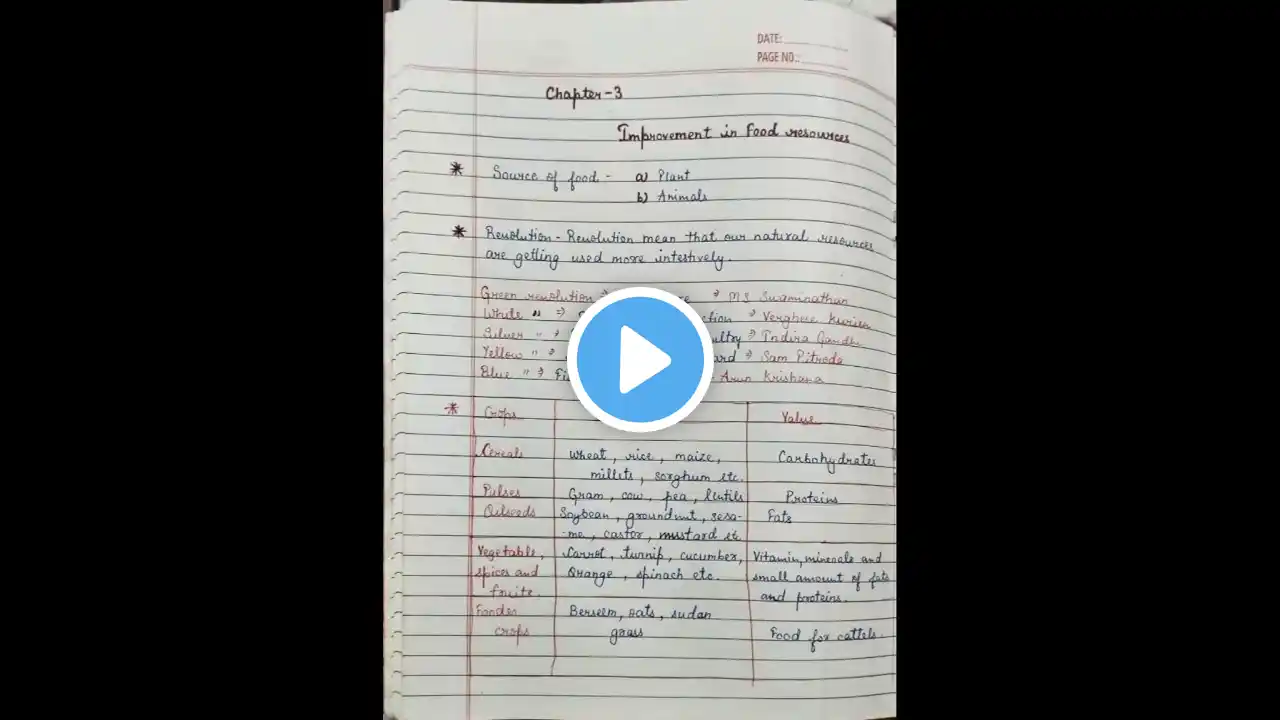 DATE:
PAGE NO.:
Chapter-3
Improvement in Food resources
* Source of food - a) Plant
b) Animals
* Revolution - Revolution mean that our natural resources
are getting used more intestively.
Green revolution ⇒ ⇒ MS Swaminathan
White " ⇒ ction ⇒ Verghese Kurien
Silver " ⇒ ultry ⇒ Indira Gandhi
Yellow " ⇒ ard ⇒ Sam Pitroda
Blue " ⇒ Fi Arun Krishana
* Crops Value
Cereals wheat, rice, maize, Carbohydrates
millets, sorghum etc.
Pulses Gram, cow, pea, lentils Proteins
Oilseeds Soybean, groundnut, sesa- Fats
me, castor, mustard etc.
Vegetable, Carrot, turnip, cucumber, Vitamin, minerals and
spices and Orange, spinach etc. small amount of fats
fruits. and proteins.
Fooder Berseem, oats, sudan
crops grass Food for cattels.